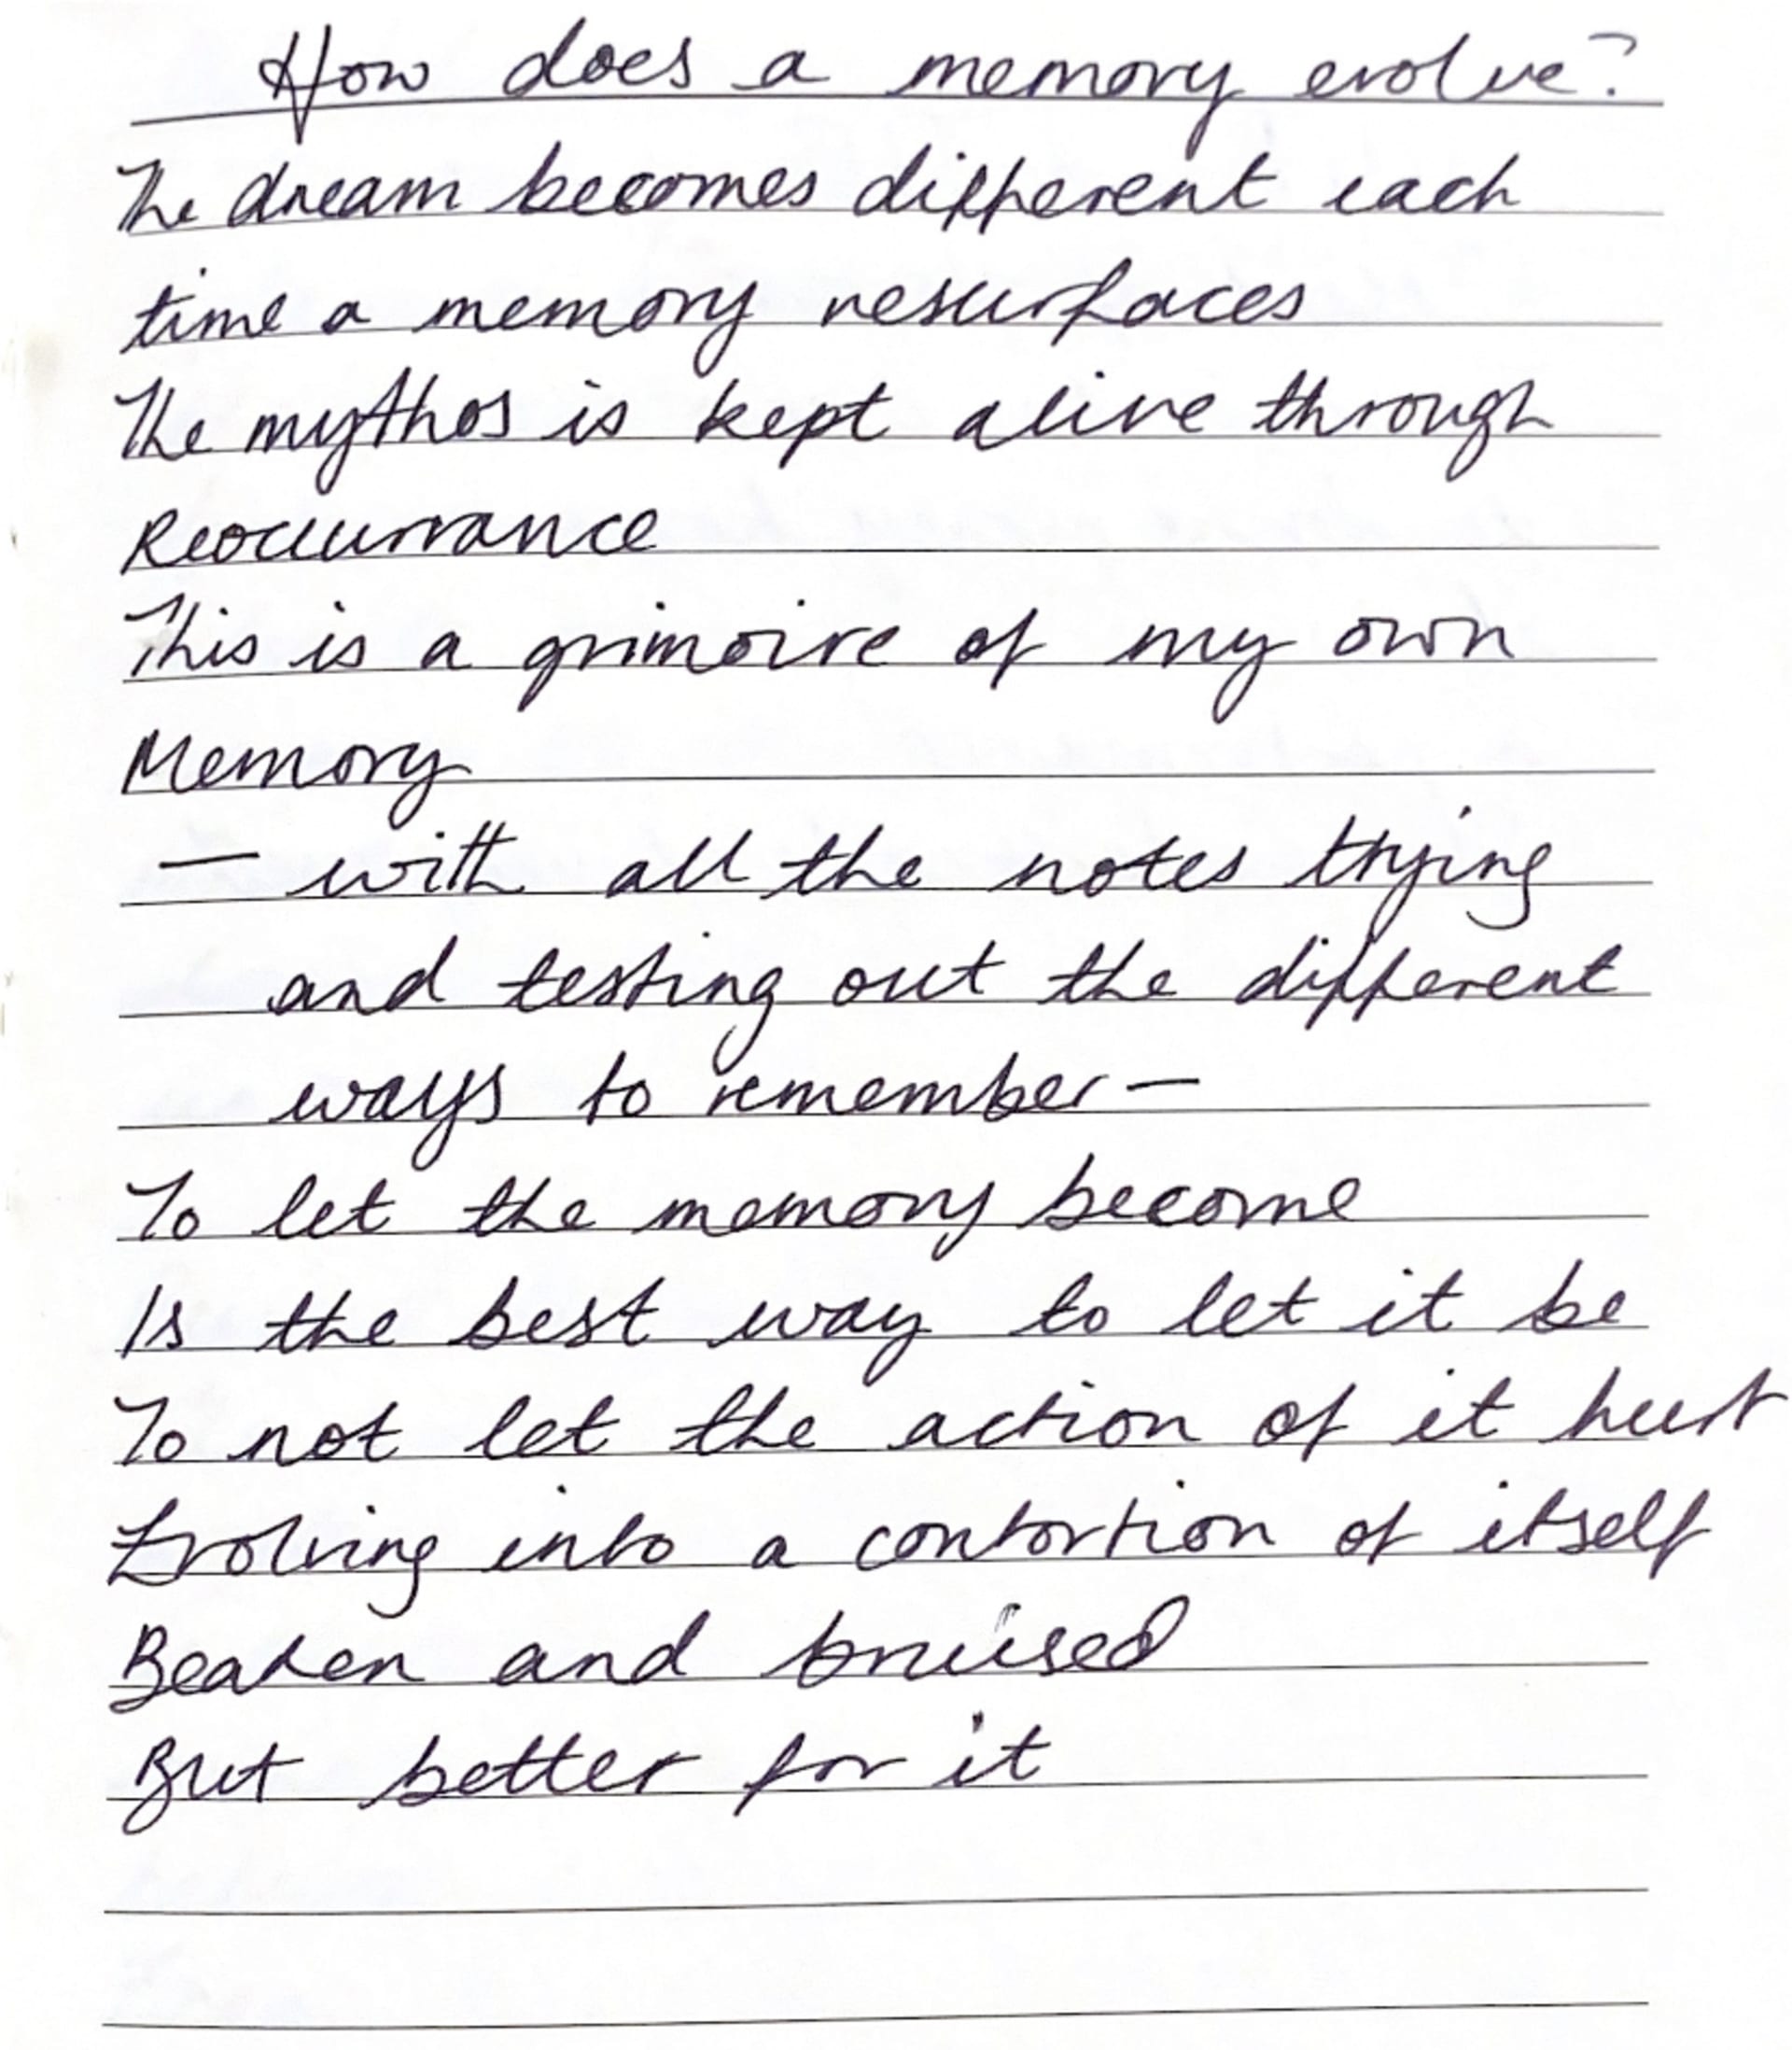 How does a memory evolve?
The dream becomes different each
time a memory resurfaces
The mythos is kept alive through
Reoccurrance
This is a grimoire of my own
Memory
— with all the notes trying
and testing out the different
ways to remember —
To let the memory become
Is the best way to let it be
To not let the action of it hurt
Evolving into a contortion of itself
Beaten and bruised
But better for it